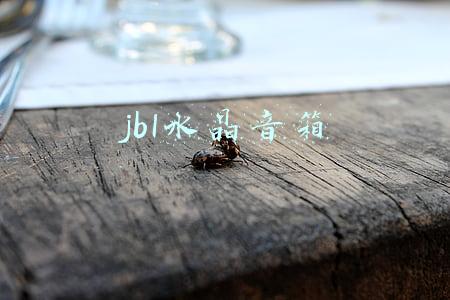 jbl水晶音箱